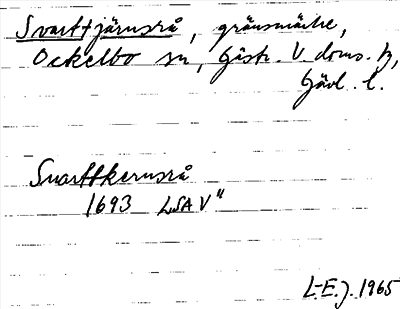 Svarttjärnsrå, gränsmärke,
Ockelbo sn, Gästr. V. doms. h,
Gävl. l.
Svarttkernsrå
1693 LSA V"
L-E. J. 1965